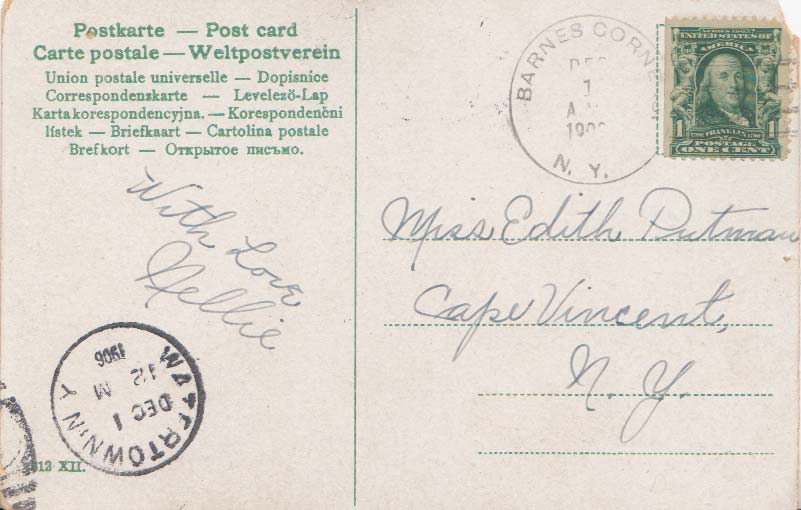 Postkarte — Post card
Carte postale — Weltpostverein
Union postale universelle — Dopisnice
Correspondenskarte — Levelező-Lap
Karta korespondencyjna. — Korespondenční
lístek — Briefkaart — Cartolina postale
Brefkort — Открытое письмо.
With Love
Nellie
WATERTOWN N.Y.
DEC 1
12 M
1906
312 XII.
BARNES CORN
DEC
1
A
190
N. Y.
SERIES 1902
UNITED STATES OF
AMERICA
1 FRANKLIN 1
POSTAGE
ONE CENT
Miss Edith Putman
Cape Vincent,
N. Y.